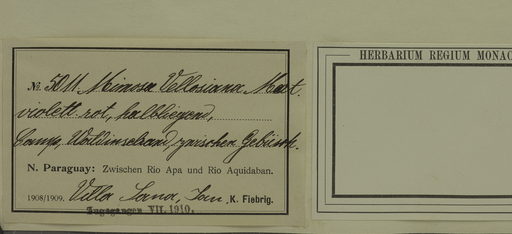 № 5011. Mimosa Vellosiana Mart.
violett rot, halbliegend,
Camp, Waldinselrand, zwischen Gebüsch.
N. Paraguay: Zwischen Rio Apa und Rio Aquidaban.
1908/1909. Villa Sana, Jan., K. Fiebrig.
Zugegangen VII. 1910.
HERBARIUM REGIUM MONAC